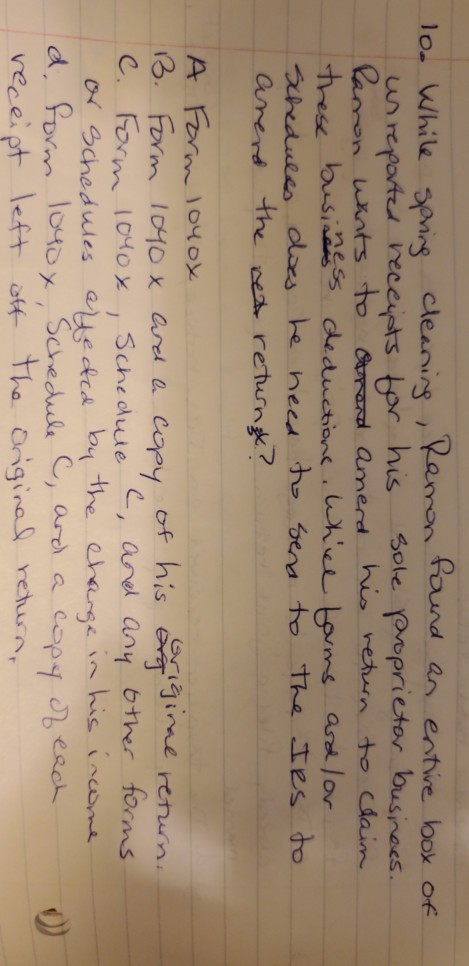 10. While spring cleaning, Ramon found an entire box of
unreported receipts for his sole proprietor business.
Ramon wants to amend his return to claim
these business deductions. Which forms and/or
schedules does he need to send to the IRS to
amend the return?
A Form 1040x
B. Form 1040x and a copy of his original return.
C. Form 1040x, Schedule C, and any other forms
or schedules affected by the change in his income
d. Form 1040x, Schedule C, and a copy of each
receipt left off the original return.